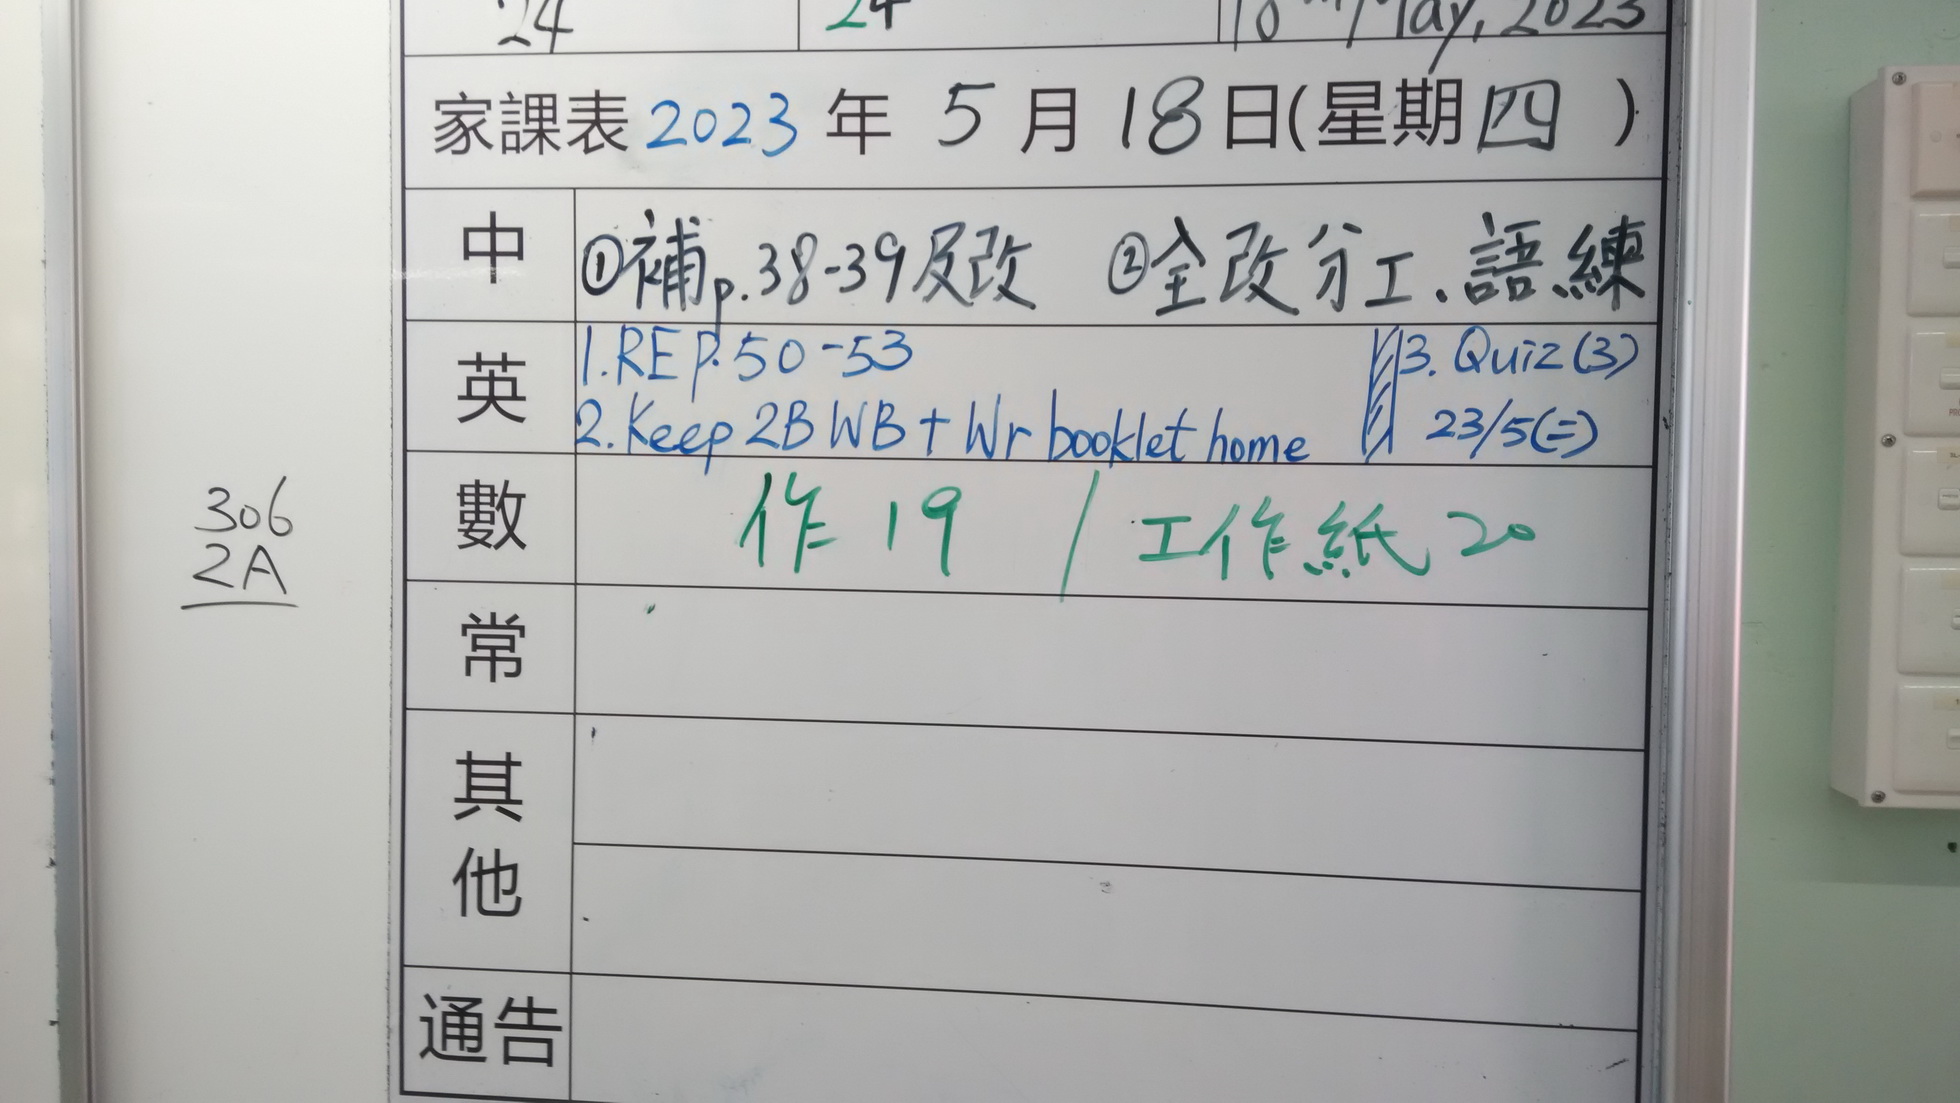 24
24
18th May, 2023
家課表 2023 年 5 月 18 日(星期四 )
中
①補p.38-39及改 ②全改分工、語練
英
1. RE P.50-53
2. Keep 2B WB + Wr booklet home
3. Quiz (3)
23/5(二)
數
作 19 / 工作紙 20
常
其他
通告
306
2A